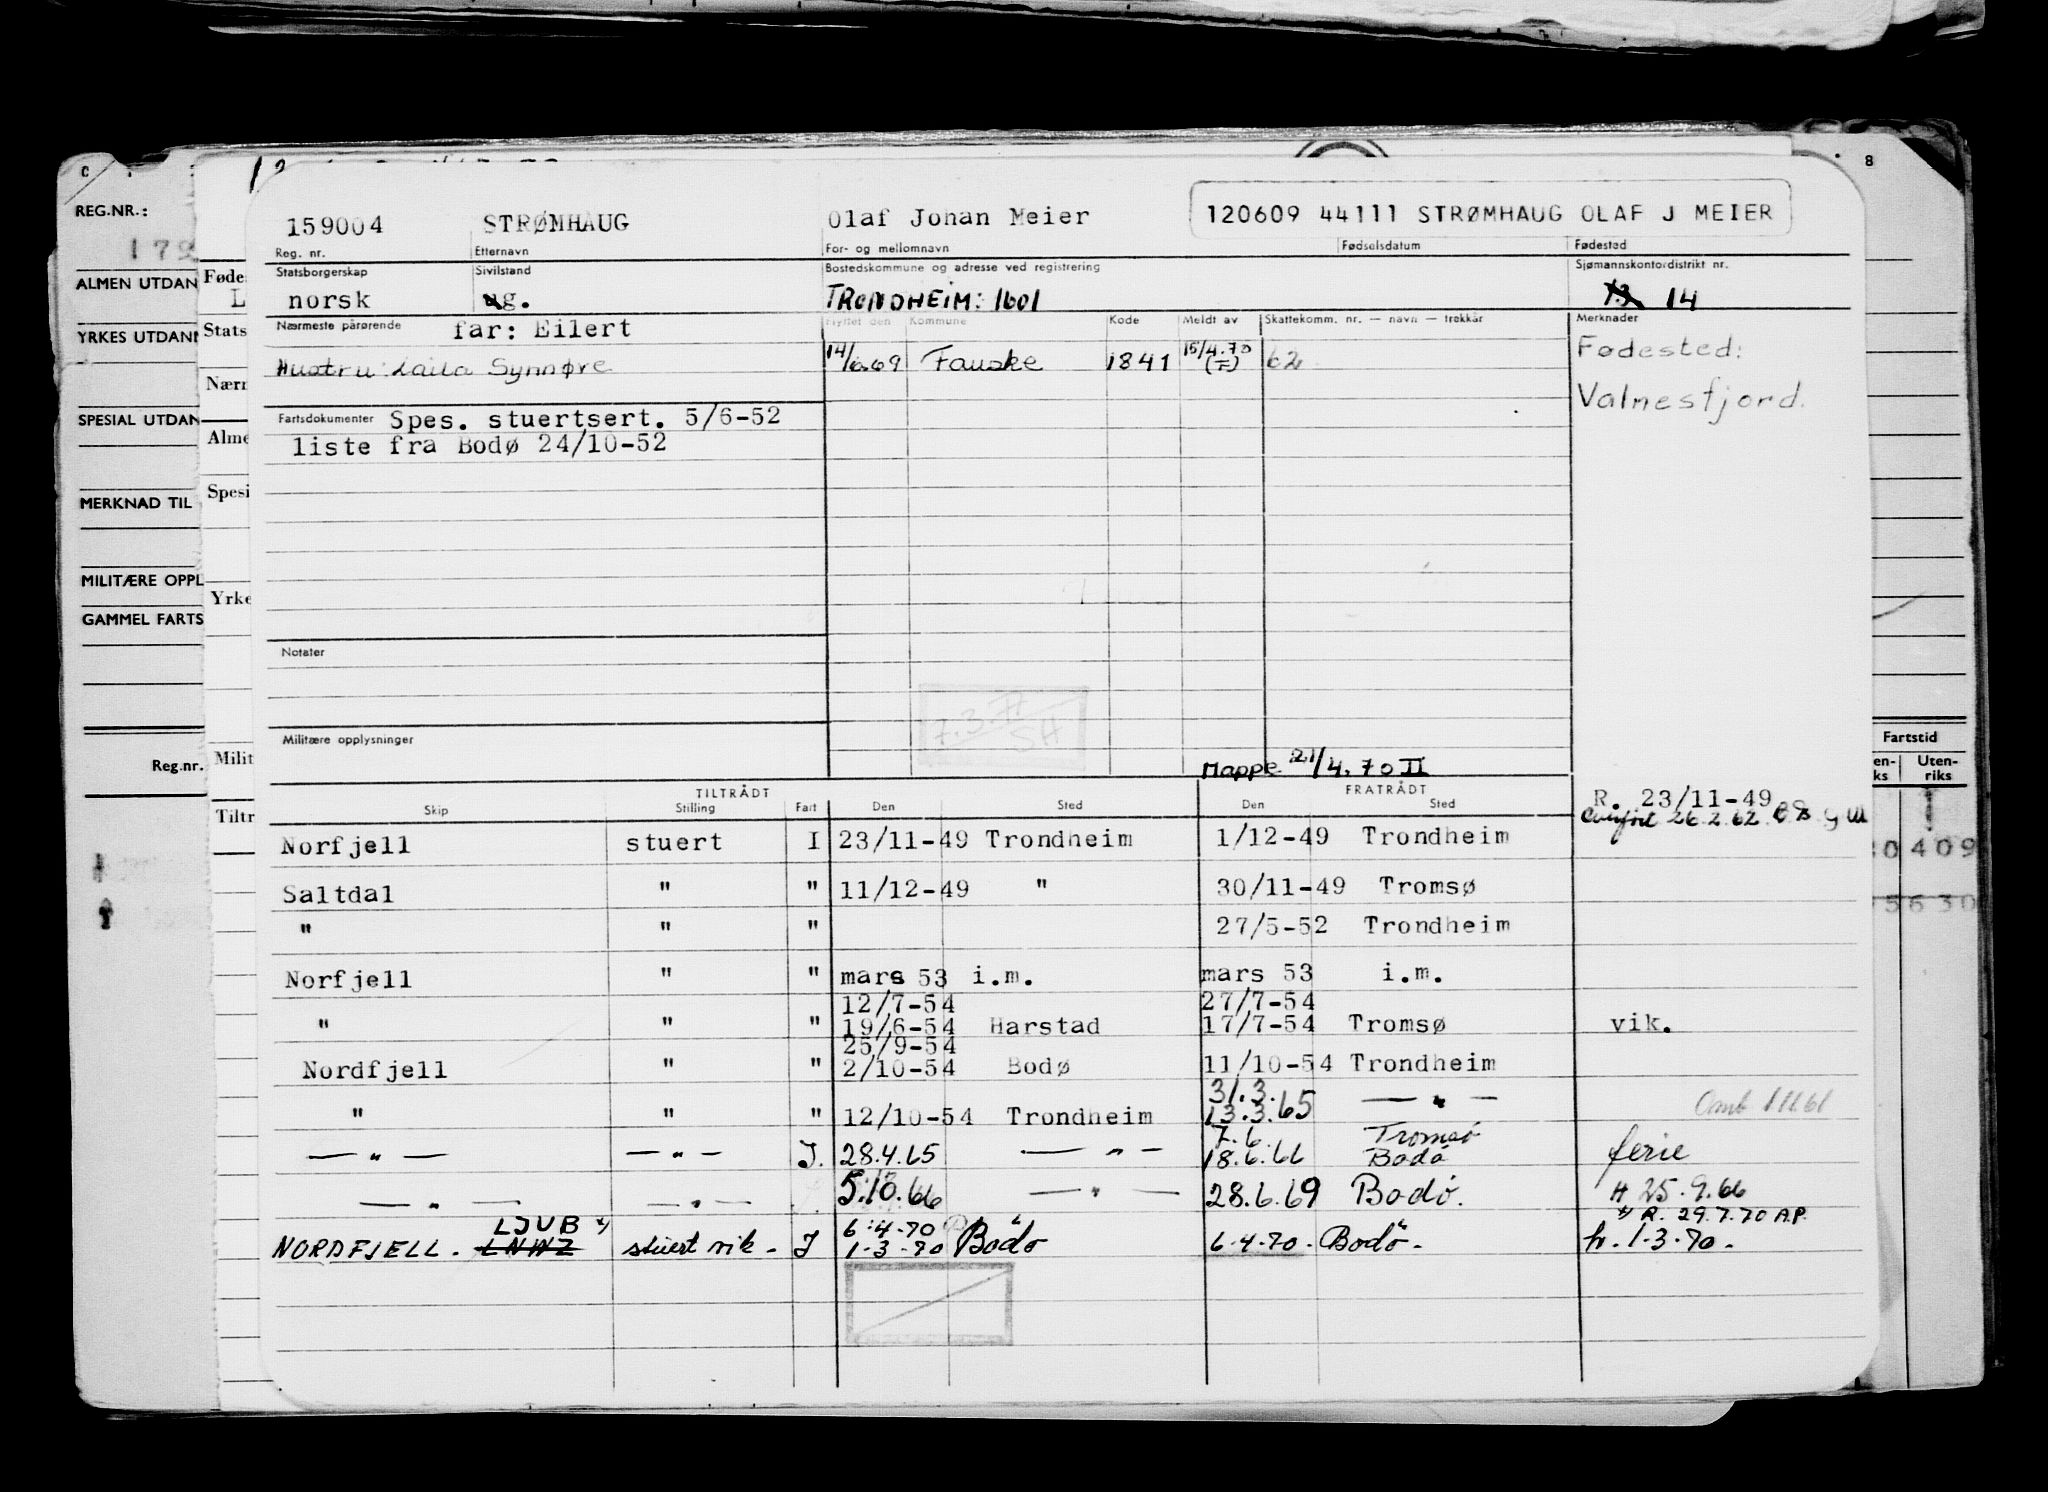 C
8
REG.NR.:
ALMEN UTDAN
YRKES UTDANN
SPESIAL UTDAN
MERKNAD TIL
MILITÆRE OPPL
GAMMEL FARTS
Reg.nr.
Føde
Stats
Nærn
Alme
Spesi
Yrke
Milit
Tiltr
159004 STRØMHAUG Olaf Johan Meier 120609 44111 STRØMHAUG OLAF J MEIER
Reg. nr. Etternavn For- og mellomnavn Fødselsdatum Fødested
Statsborgerskap Sivilstand Bostedskommune og adresse ved registrering Sjømannskontordistrikt nr.
norsk g. TRONDHEIM: 1601 14
Nærmeste pårørende far: Eilert Flyttet den Kommune Kode Meldt av Skattekomm. nr. — navn — trekkår Merknader
Hustru: Laila Synnøve 14/6.69 Fauske 1841 15/4.70 62 Fødested:
Valnesfjord.
Fartsdokumenter Spes. stuertsert. 5/6-52
liste fra Bodø 24/10-52
Notater
Militære opplysninger
Mappe 21/4.70 II
TILTRÅDT FRATRÅDT
Skip Stilling Fart Den Sted Den Sted
R. 23/11-49
26.2.62
Norfjell stuert I 23/11-49 Trondheim 1/12-49 Trondheim
Saltdal " " 11/12-49 " 30/11-49 Tromsø
" " " 27/5-52 Trondheim
Norfjell " " mars 53 i.m. mars 53 i.m.
12/7-54 27/7-54
" " " 19/6-54 Harstad 17/7-54 Tromsø vik.
25/9-54
Nordfjell " " 2/10-54 Bodø 11/10-54 Trondheim
31.3.
" " " 12/10-54 Trondheim 13.3.65 — " —
7.6. Tromsø
— " — — " — I. 28.4.65 — " — 18.6.66 Bodø ferie
— " — — " — 5.10.66 — " — 28.6.69 Bodø. H 25.9.66
LJUB x) 6.4.70 x) R. 29.7.70 A.P.
NORDFJELL. LNWZ stuert vik - I 1.3.70 Bodø 6.4.70. Bodø. fr. 1.3.70.
Fartstid
Uten-
riks